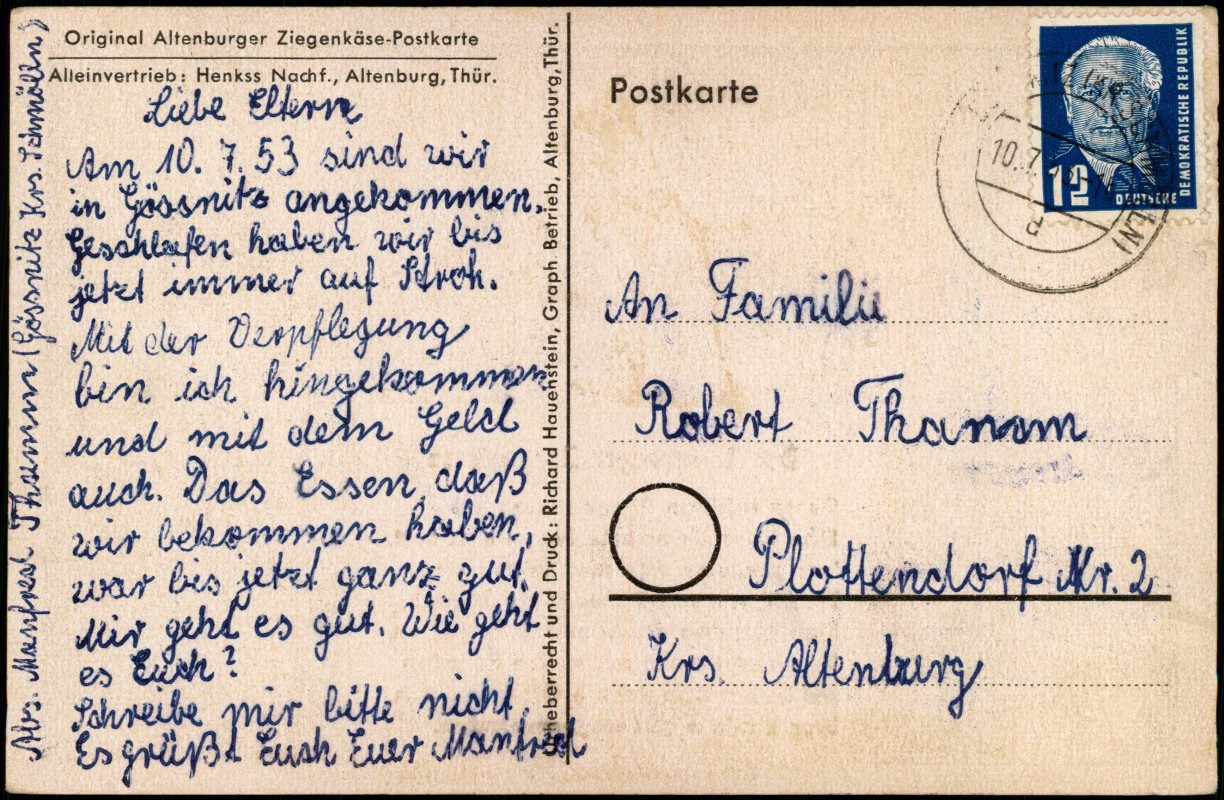 Original Altenburger Ziegenkäse-Postkarte
Alleinvertrieb: Henkss Nachf., Altenburg, Thür.
Liebe Eltern
Am 10. 7. 53 sind wir
in Gössnitz angekommen.
Geschlafen haben wir bis
jetzt immer auf Stroh.
Mit der Verpflegung
bin ich hingekommen
und mit dem Geld
auch. Das Essen, daß
wir bekommen haben,
war bis jetzt ganz gut.
Mir geht es gut. Wie geht
es Euch?
Schreibe mir bitte nicht.
Es grüßt Euch Euer Manfred
Abs. Manfred Thamm (Gössnitz Krs. Schmölln)
heberrecht und Druck: Richard Hauenstein, Graph Betrieb, Altenburg, Thür.
Postkarte
DEUTSCHE
DEMOKRATISCHE REPUBLIK
12
10.7.
d
An Familie
Robert Thamm
Plottendorf Nr. 2
Krs. Altenburg